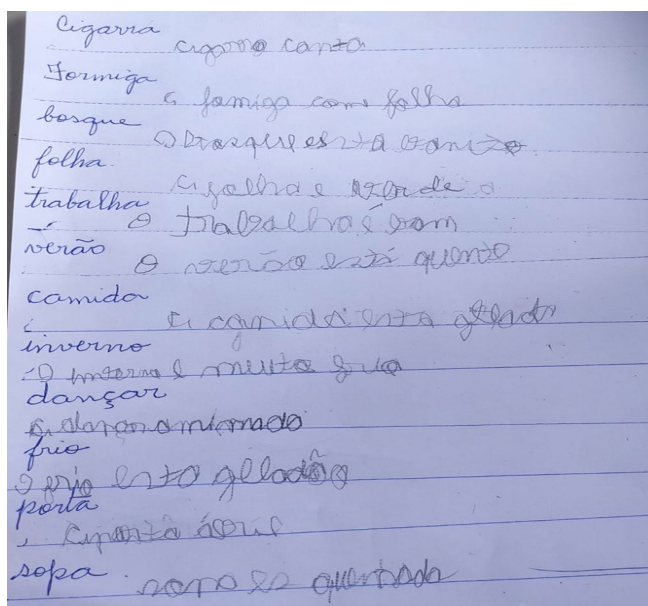 Cigarra
cigarra canta
Formiga
a famiga come folha
bosque
O bosque está
folha
a folha e
trabalha
O trabalho e bom
verão
O verão está quente
comida
a comida esta gelada
inverno
O inverno e muito frio
dançar
frio
o frio esta gelado
porta
a porta
sopa
sopa es quentada